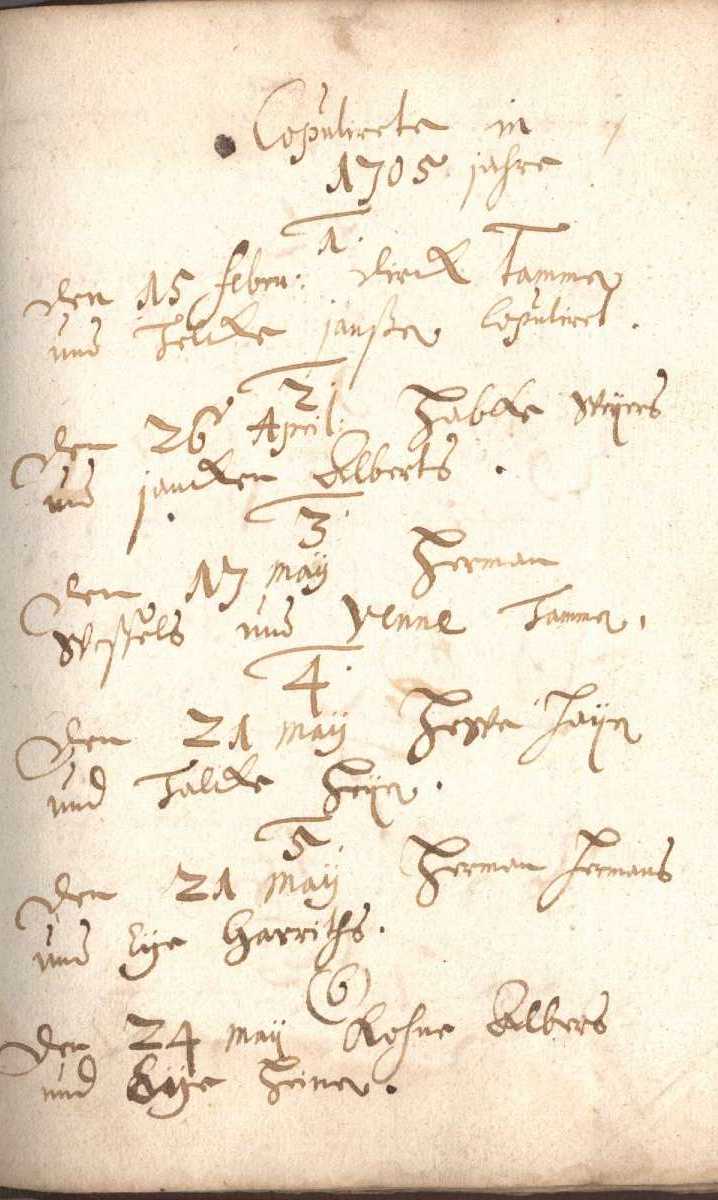 Copulirete in
1705 jahre
1.
den 15 febru: dirck Tammen
und Telcke janßen Copuliret.
2.
den 26 April. Habbke Weyers
und jancken Alberts.
3.
den 17 maÿ Herman
Weßels und Venne Tammen.
4.
den 21 maÿ Heÿe Haÿen
und Talcke Heÿen.
5.
den 21 maÿ Herman Hermans
und Eÿe Harriths.
(6)
den 24 maÿ Rohne Albers
und Eÿe Heinen.